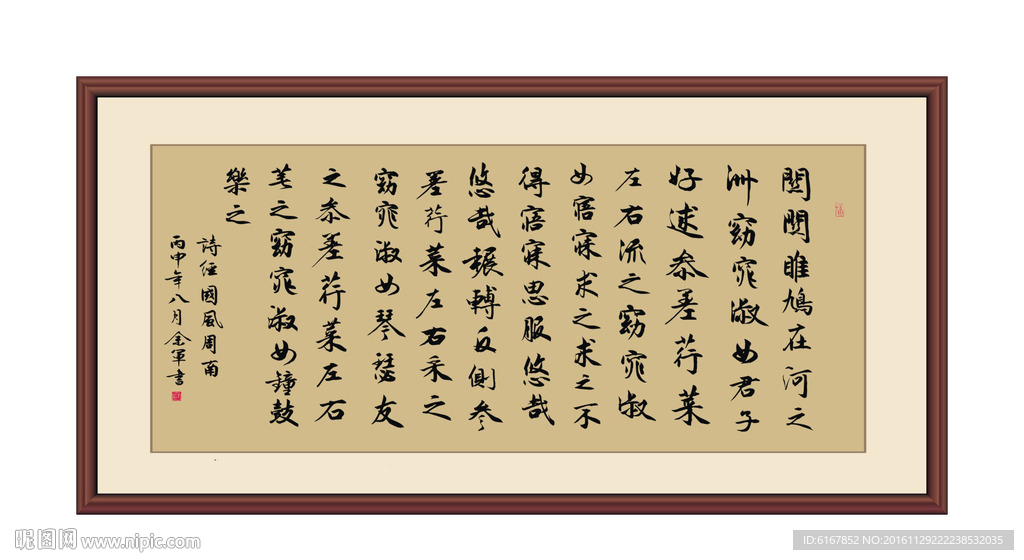 關關雎鳩在河之
洲窈窕淑女君子
好逑參差荇菜
左右流之窈窕淑
女寤寐求之求之不
得寤寐思服悠哉
悠哉輾轉反側參
差荇菜左右采之
窈窕淑女琴瑟友
之參差荇菜左右
芼之窈窕淑女鐘鼓
樂之
詩經國風周南
丙申年八月金軍書
昵图网 www.nipic.com
ID:6167852 NO:20161129222238532035